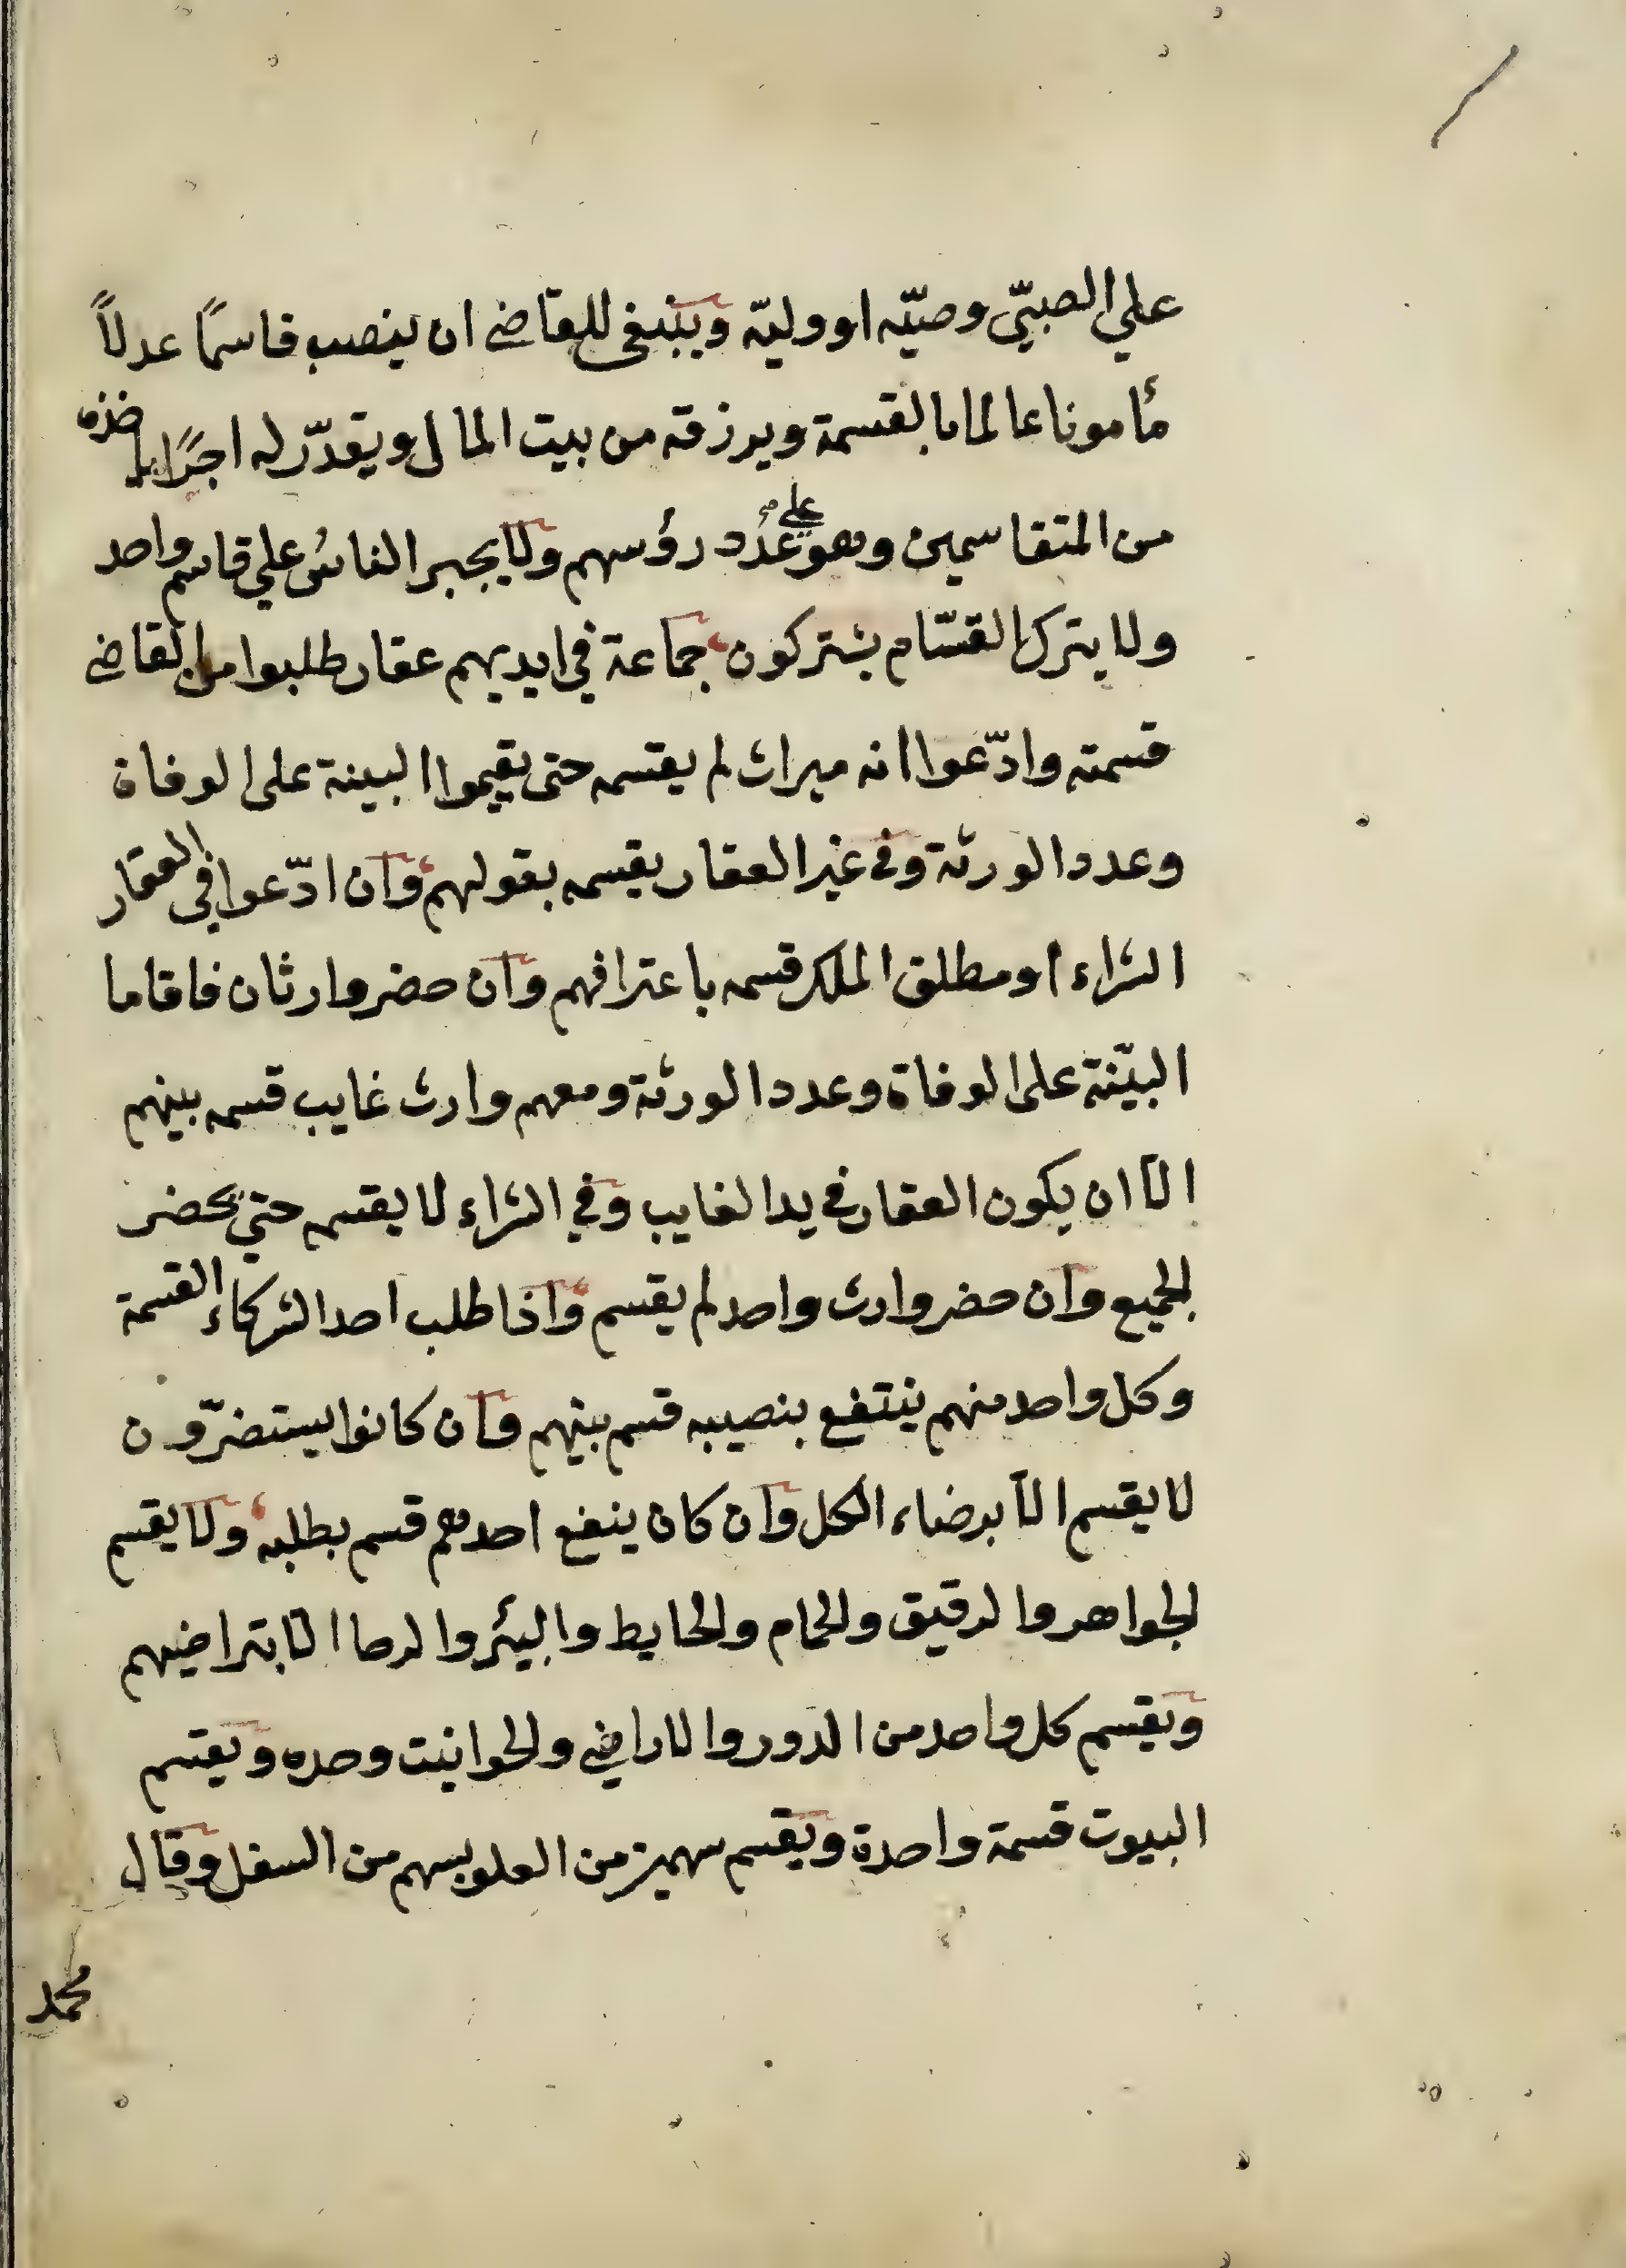 علي الصبيّ وصيّه او وليّه وينبغي للقاضي ان ينصب قاسمًا عدلاً
مأمونا عالما بالقسمة ويرزقه من بيت المال ويقدّر له اجرًا يأخذه
من المتقاسمين وهو علي عدد رؤسهم ولا يجبر الناس علي قاسم واحد
ولا يترك القسّام يشتركون جماعة في ايديهم عقار طلبوا من القاضي
قسمته وادّعوا انه ميراث لم يقسمه حتى يقيموا البينة على الوفاة
وعدد الورثة وفي غير العقار يقسمه بقولهم وان ادّعوا في العقار
الشراء او مطلق الملك قسمه باعترافهم وان حضر وارثان فاقاما
البيّنة على الوفاة وعدد الورثة ومعهم وارث غايب قسمه بينهم
الا ان يكون العقار في يد الغايب وفي الشراء لا يقسمه حتي يحضر
الجميع وان حضر وارث واحد لم يقسم واذا طلب احد الشركاء القسمة
وكل واحد منهم ينتفع بنصيبه قسم بينهم وان كانوا يستضرّون
لا يقسم الا برضاء الكل وان كان ينفع احدهم قسم بطلبه ولا يقسم
الجواهر والرقيق والحمام والحايط والبئر والرحا الا بتراضيهم
ويقسم كل واحد من الدور والاراضي والحوانيت وحده ويقسم
البيوت قسمة واحدة ويقسم سهمين من العلو بسهم من السفل وقال
محمد